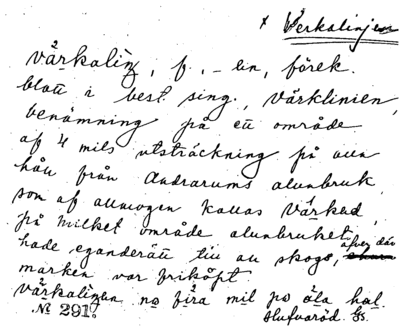 × Verkalinjen
värkaliŋ, f., -en, förek.
blott i best. sing., värklinien,
benämning på ett område
af 4 mils utsträckning på alla
håll från Andrarums alunbruk,
som af allmogen kallas Värked,
på hvilket område alunbruket
hade eganderätt till all skog, äfven där
marken var friköpt.
värkaliŋen no fira mil po ala hal.
№ 291. Hufvaröd Gs.